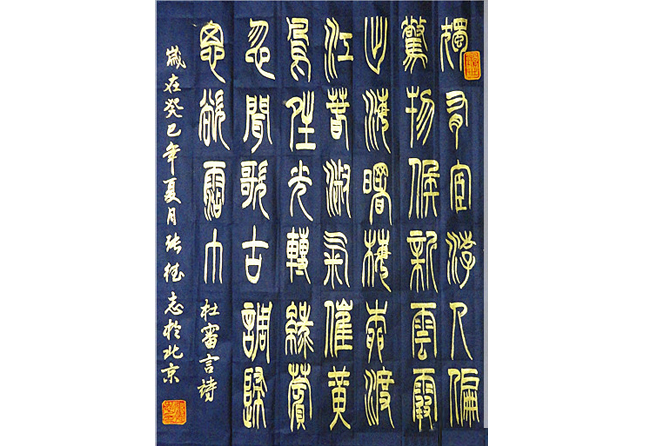 獨有宦游人偏
驚物候新雲霞
出海曙梅柳渡
江春淑氣催黃
鳥晴光轉綠蘋
忽聞歌古調歸
思欲霑巾
杜審言詩
歲在癸巳年夏月張德志於北京